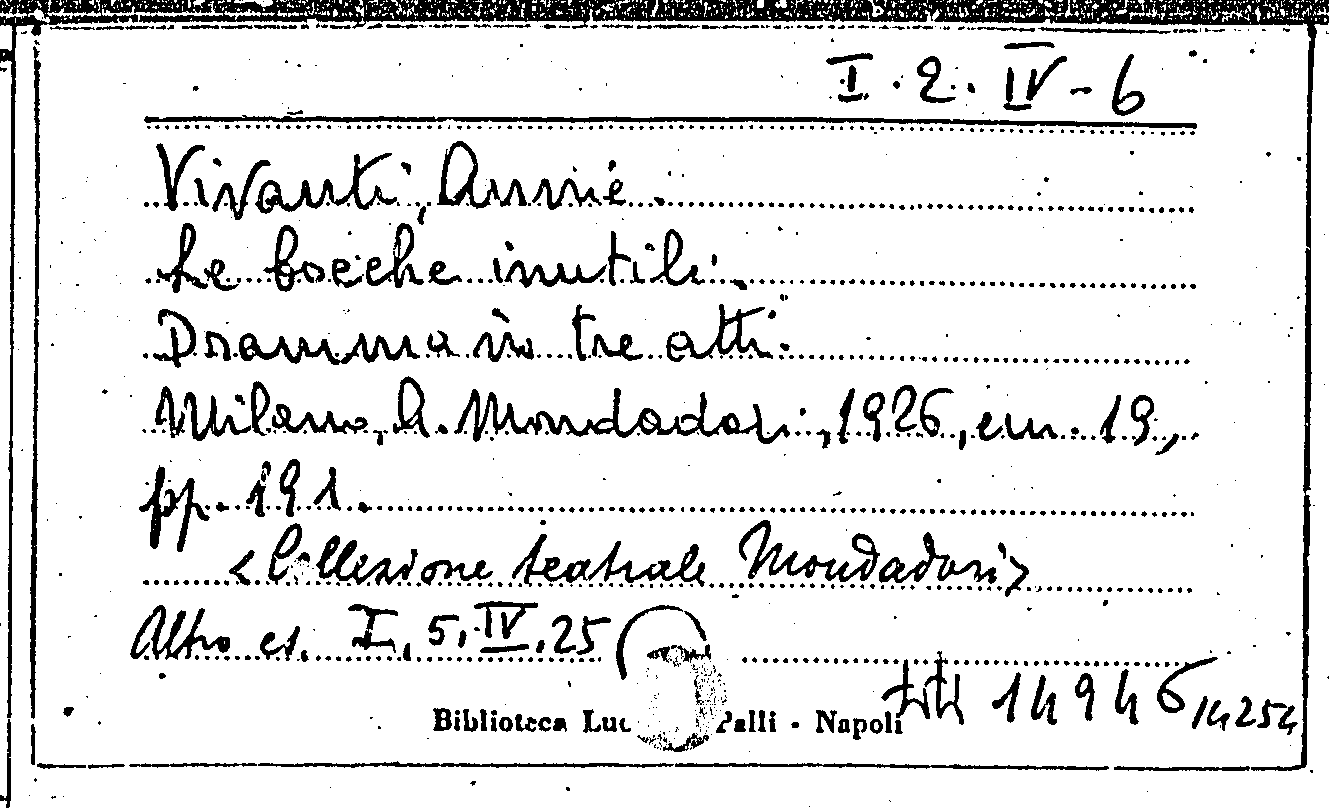 I. 2. IV - 6
Vivanti, Annie.
Le bocche inutili.
Dramma in tre atti.
Milano, A. Mondadori, 1926, cm. 19,
pp. 191.
<Collezione teatrale Mondadori>
Altro es. I. 5. IV. 25
14946 14254
Biblioteca Luc Palli - Napoli